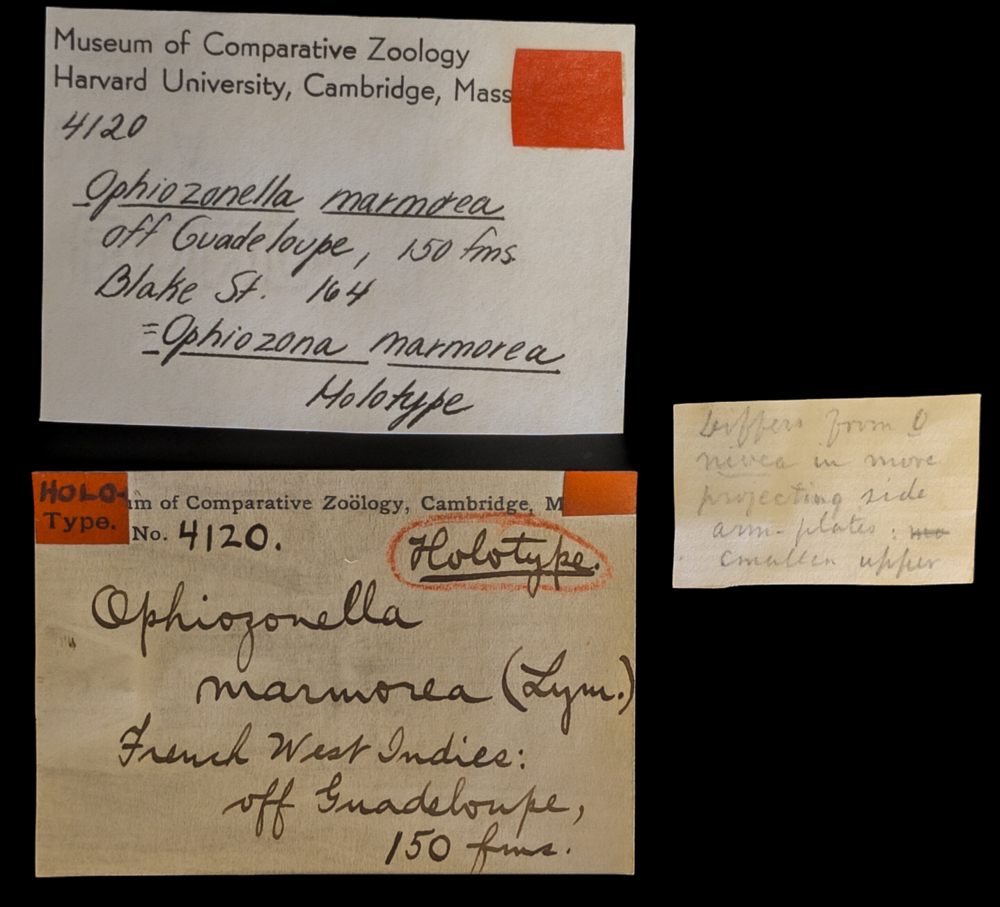 Museum of Comparative Zoology
Harvard University, Cambridge, Mass
4120
Ophiozonella marmorea
off Guadeloupe, 150 fms.
Blake St. 164
=Ophiozona marmorea
Holotype
HOLO-
Type.
m of Comparative Zoölogy, Cambridge, M
No. 4120.
Holotype.
Ophiozonella
marmorea (Lym.)
French West Indies:
off Guadeloupe,
150 fms.
Differs from O
nivea in more
projecting side
arm-plates:
smaller upper